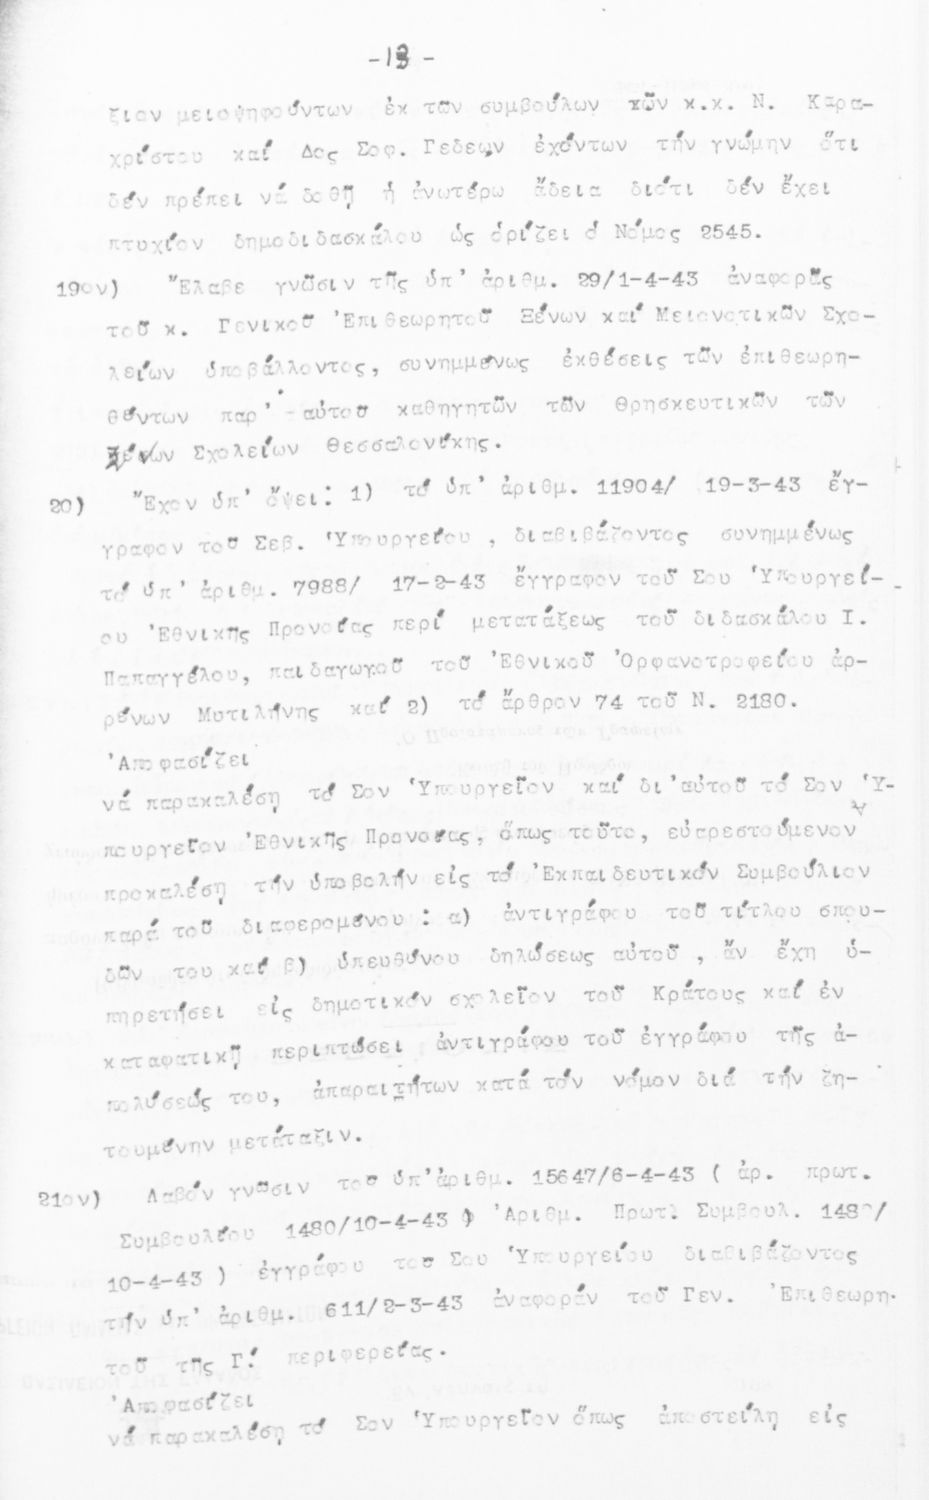 -13-
ξιον μειοψηφούντων ἐκ τῶν συμβούλων τῶν κ.κ. Ν. Καρα-
χρίστου καί Δος Σοφ. Γεδεων ἐχόντων τήν γνώμην ὅτι
δέν πρέπει νά δοθῇ ἡ ἀνωτέρω ἄδεια διότι δέν ἔχει
πτυχίον δημοδιδασκάλου ὡς ὁρίζει ὁ Νόμος 2545.
19ον) Ἔλαβε γνῶσιν τῆς ὑπ' ἀριθμ. 29/1-4-43 ἀναφορᾶς
τοῦ κ. Γενικοῦ Ἐπιθεωρητοῦ Ξένων καί Μειονοτικῶν Σχο-
λείων ὑποβάλλοντος, συνημμένως ἐκθέσεις τῶν ἐπιθεωρη-
θέντων παρ' αὐτοῦ καθηγητῶν τῶν Θρησκευτικῶν τῶν
Ξένων Σχολείων Θεσσαλονίκης.
20) Ἔχον ὑπ' ὄψει: 1) τό ὑπ' ἀριθμ. 11904/ 19-3-43 ἔγ-
γραφον τοῦ Σεβ. Ὑπουργείου , διαβιβάζοντος συνημμένως
τό ὑπ' ἀριθμ. 7988/ 17-2-43 ἔγγραφον τοῦ Σου Ὑπουργεί-
ου Ἐθνικῆς Προνοίας περί μετατάξεως τοῦ διδασκάλου Ι.
Παπαγγέλου, παιδαγωγοῦ τοῦ Ἐθνικοῦ Ὀρφανοτροφείου ἀρ-
ρένων Μυτιλήνης καί 2) τό ἄρθρον 74 τοῦ Ν. 2180.
Ἀποφασίζει
νά παρακαλέση τό Σον Ὑπουργεῖον καί δι'αὐτοῦ τό Σον Ὑ-
πουργεῖον Ἐθνικῆς Προνοίας, ὅπως τοῦτο, εὐαρεστούμενον
προκαλέση τήν ὑποβολήν εἰς τό Ἐκπαιδευτικόν Συμβούλιον
παρά τοῦ διαφερομένου : α) ἀντιγράφου τοῦ τίτλου σπου-
δῶν του καί β) ὑπευθύνου δηλώσεως αὐτοῦ , ἄν ἔχη ὑ-
πηρετήσει εἰς δημοτικόν σχολεῖον τοῦ Κράτους καί ἐν
καταφατικῇ περιπτώσει ἀντιγράφου τοῦ ἐγγράφου τῆς ἀ-
πολύσεώς του, ἀπαραιτήτων κατά τόν νόμον διά τήν ζη-
τουμένην μετάταξιν.
21ον) Λαβόν γνῶσιν τοῦ ὑπ'ἀριθμ. 15647/6-4-43 ( ἀρ. πρωτ.
Συμβουλίου 1480/10-4-43 ) Ἀριθμ. Πρωτ. Συμβουλ. 1480/
10-4-43 ) ἐγγράφου τοῦ Σου Ὑπουργείου διαβιβάζοντος
τήν ὑπ' ἀριθμ. 611/2-3-43 ἀναφοράν τοῦ Γεν. Ἐπιθεωρη-
τοῦ τῆς Γ! περιφερείας.
Ἀποφασίζει
νά παρακαλέση τό Σον Ὑπουργεῖον ὅπως ἀποστείλη εἰς